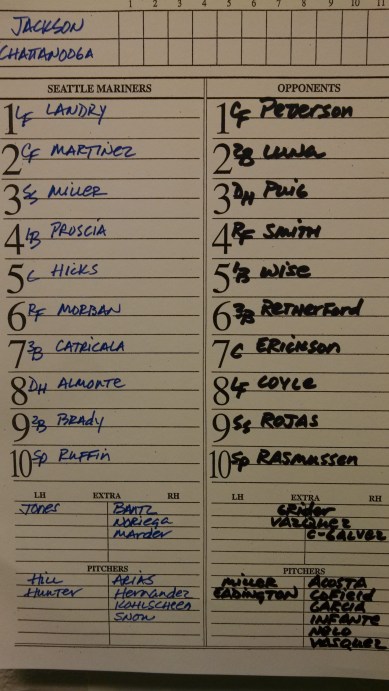 1 2 3 4 5 6 7 8 9 10 11
JACKSON
CHATTANOOGA
SEATTLE MARINERS
1 LF LANDRY
2 CF MARTINEZ
3 SS MILLER
4 1B PROSCIA
5 C HICKS
6 RF MORBAN
7 3B CATRICALA
8 DH ALMONTE
9 2B BRADY
10 SP RUFFIN
LH EXTRA RH
JONES BANTZ
NORIEGA
MARDER
PITCHERS
HILL ARIAS
HUNTER Hernandez
KOHLSCHEEN
SNOW
OPPONENTS
1 CF PeDerson
2 2B LUNA
3 DH PUIG
4 RF SMITH
5 1B WISE
6 3B RETHERFORD
7 C ERICKSON
8 LF COYLE
9 SS ROJAS
10 SP RASMUSSEN
LH EXTRA RH
GRIDER
VAZQUEZ
C-GALVEZ
PITCHERS
MILLER ACOSTA
EADINGTON COFIELD
GARCIA
INFANTE
NELO
VASQUEZ